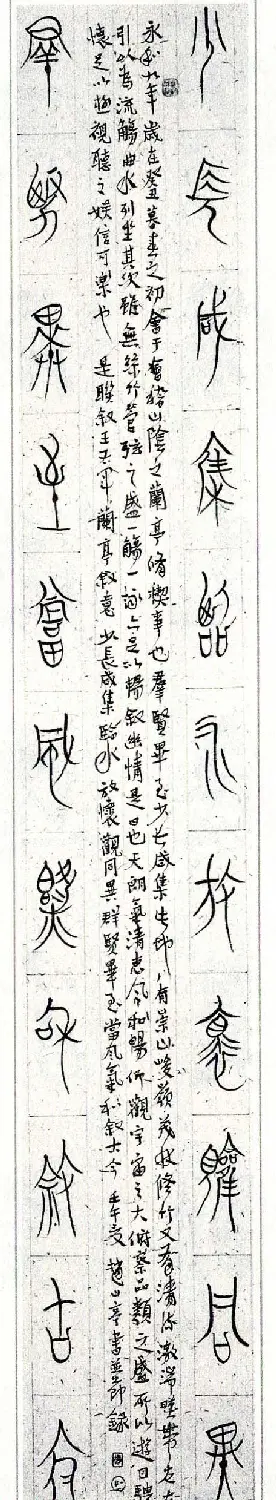 少長咸集臨水放懷觀同異
永和九年歲在癸丑暮春之初會于會稽山陰之蘭亭脩禊事也羣賢畢至少長咸集此地有崇山峻嶺茂林修竹又有清流激湍暎帶左右
引以為流觴曲水列坐其次雖無絲竹管弦之盛一觴一詠亦足以暢敘幽情是日也天朗氣清惠風和暢仰觀宇宙之大俯察品類之盛所以遊目騁
懷足以極視聽之娛信可樂也 是聯敘王右軍蘭亭敘意 少長咸集臨水放懷觀同異群賢畢至當風氣和敘古今 壬午夏 趙山亭書並節錄
羣賢畢至當風氣和敘古今